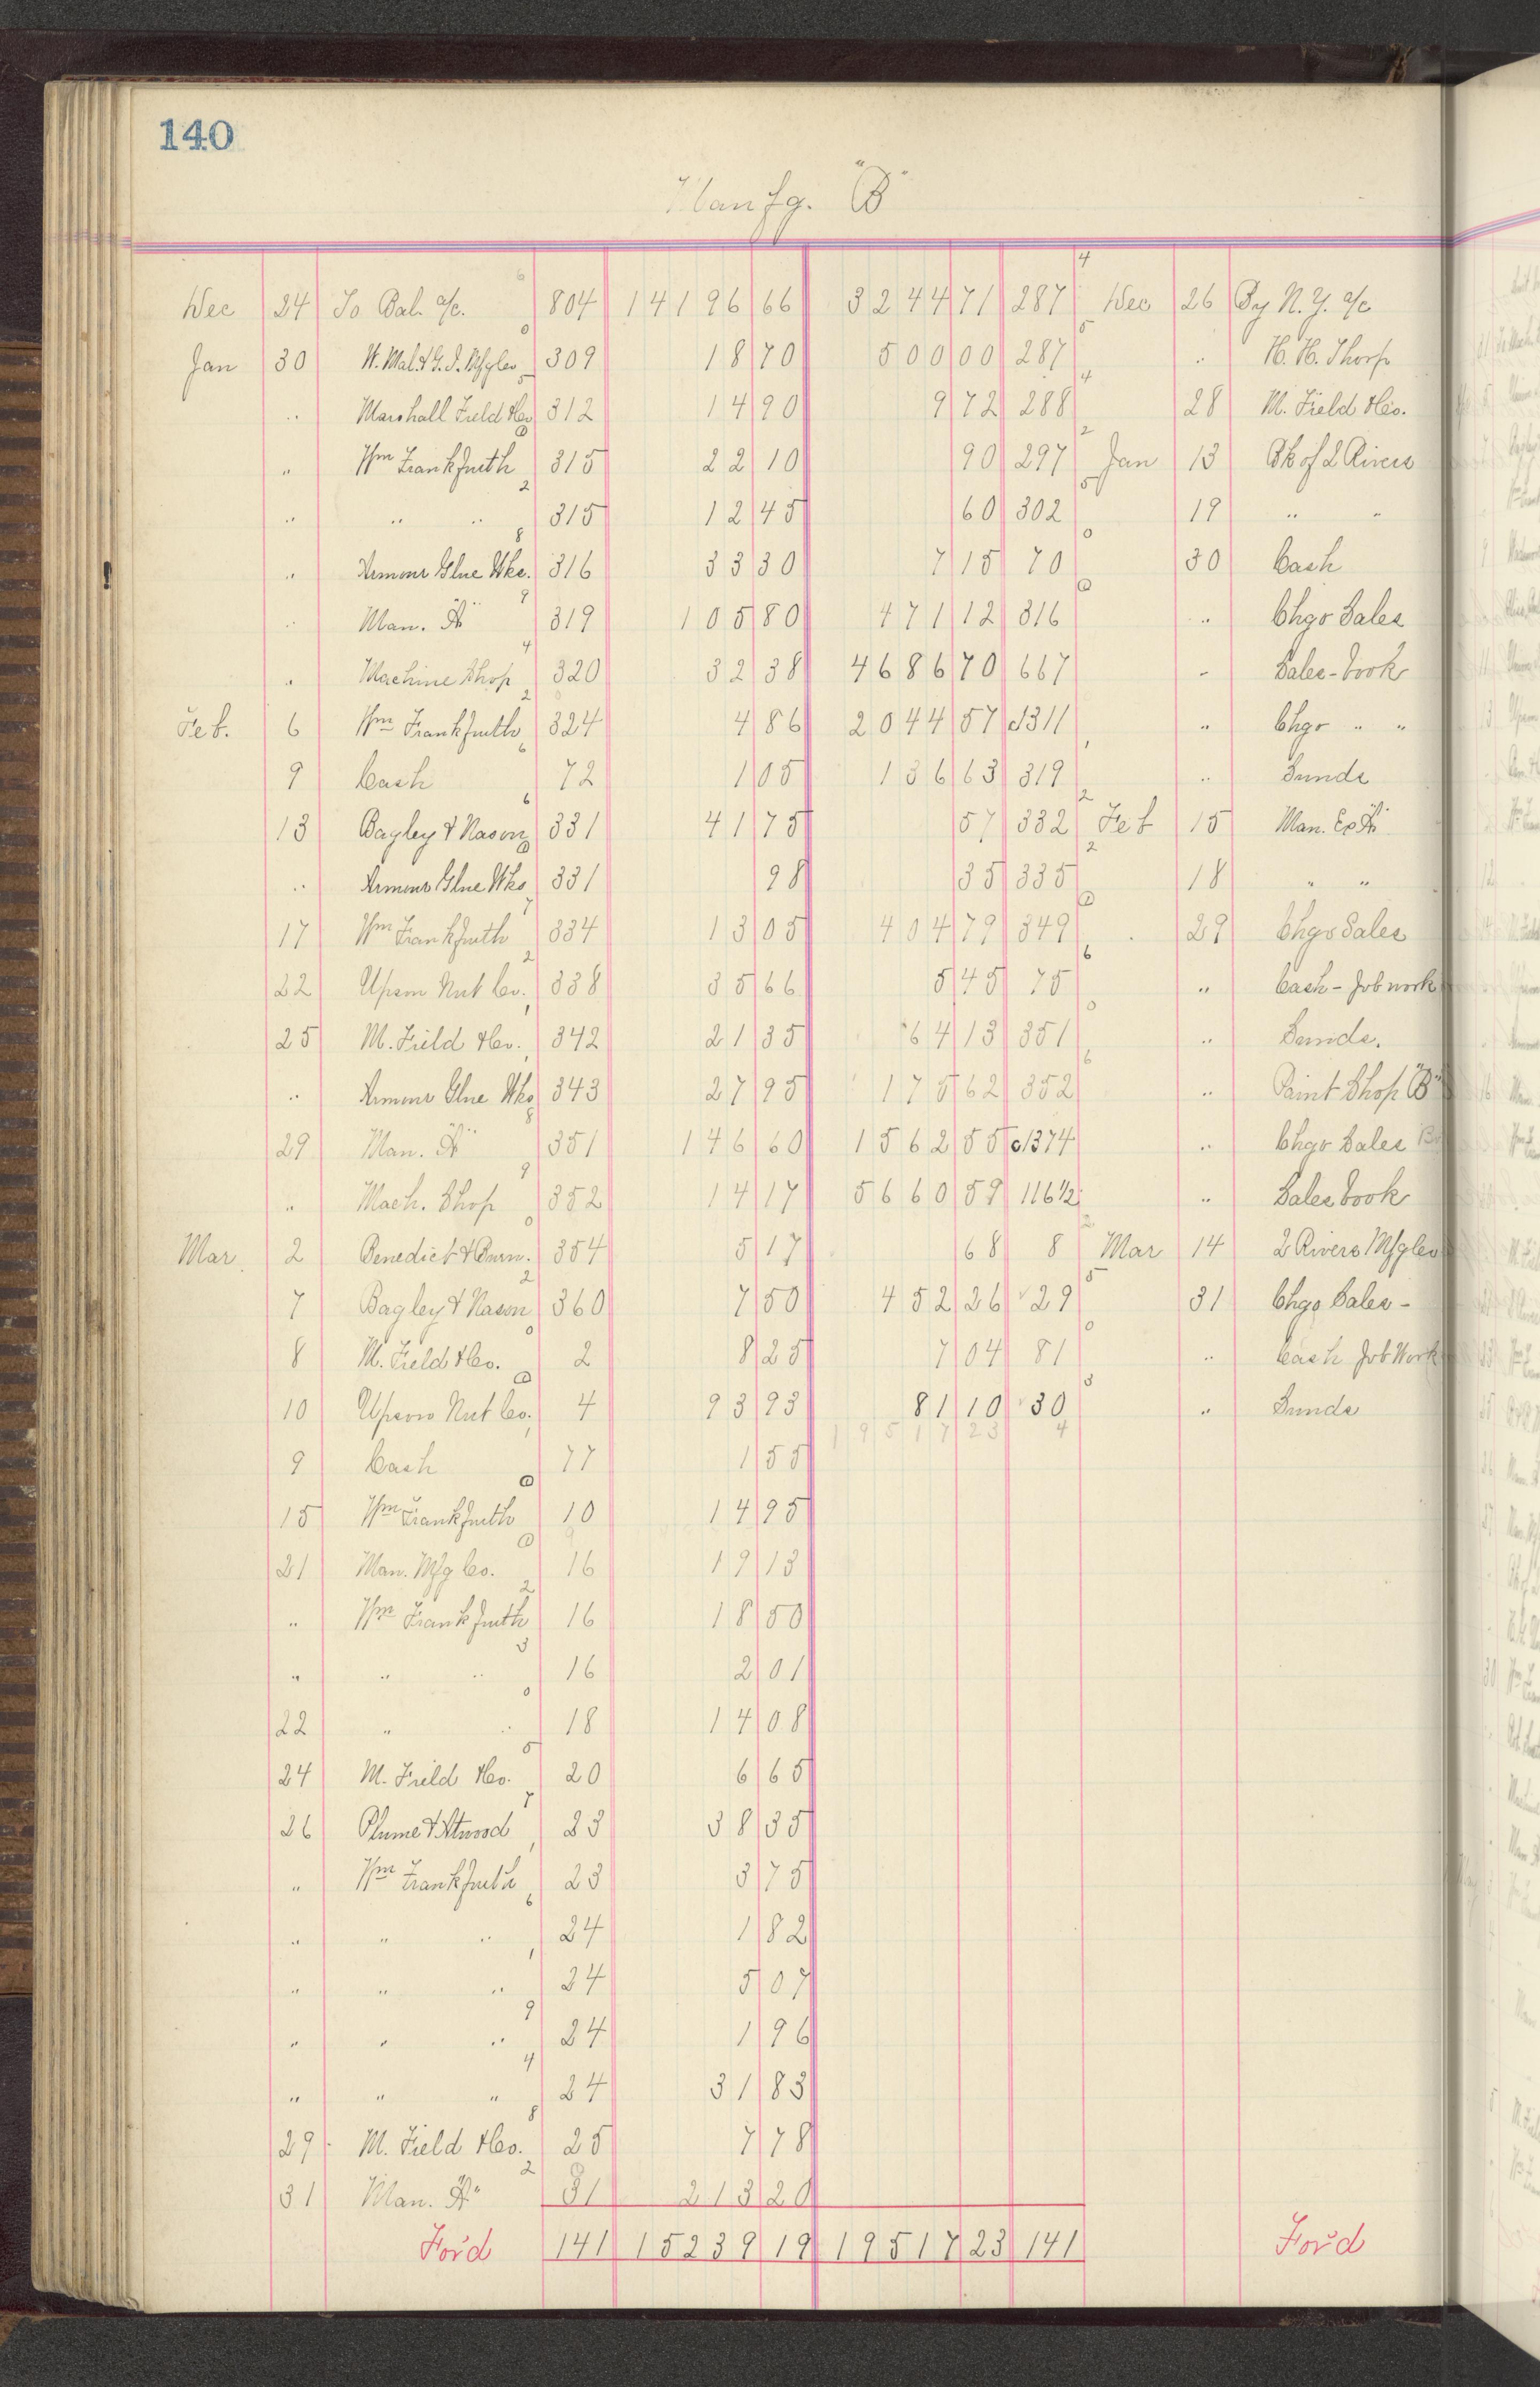 140
Manfg. "B"
Dec 24 To Bal. a/c. 804 14196 66 3244 71 287 Dec 26 By N. Y. a/c
Jan 30 309 18 70 5000 00 287 " H. H. Thorp
" Marshall Field &Co 312 14 90 9 72 288 28 M. Field &Co.
" Wm Frankfurth 315 22 10 90 297 Jan 13 Bk of 2 Rivers
" " " 315 12 45 60 302 19 " "
" Armour Glue Wks. 316 33 30 7 15 70 30 Cash
" Man. "A" 319 105 80 471 12 316 " Chgo Sales
" Machine Shop 320 32 38 4686 70 667 " Sales-book
Feb. 6 Wm Frankfurth 324 4 86 2044 57 c1311 " Chgo " "
9 Cash 72 1 05 136 63 319 " Sunds
13 Bagley & Nason 331 41 75 57 332 Feb 15 Man. Co "A"
" Armour Glue Wks 331 98 35 335 18 " "
17 Wm Frankfurth 334 13 05 404 79 349 29 Chgo Sales
22 Upson Nut Co. 338 35 66 5 45 75 " Cash - Job work
25 M. Field &Co. 342 21 35 64 13 351 " Sunds.
" Armour Glue Wks 343 27 95 175 62 352 " Paint Shop "B"
29 Man. "A" 351 146 60 1562 55 c1374 " Chgo Sales
" Mach. Shop 352 14 17 5660 59 116½ " Sales book
Mar. 2 Benedict & Burn. 354 5 17 68 8 Mar 14 2 Rivers Mfg Co
7 Bagley & Nason 360 7 50 452 26 29 31 Chgo Sales -
8 M. Field &Co. 2 8 25 7 04 81 " Cash Job Work
10 Upson Nut Co. 4 93 93 81 10 30 " Sunds
19517 23
9 Cash 77 1 55
15 Wm Frankfurth 10 14 95
21 Man. Mfg Co. 16 19 13
" Wm Frankfurth 16 18 50
" " " 16 2 01
22 " " 18 14 08
24 M. Field &Co. 20 6 65
26 Plume & Atwood 23 38 35
" Wm Frankfurth 23 3 75
" " " 24 1 82
" " " 24 5 07
" " " 24 1 96
" " " 24 31 83
29 M. Field &Co. 25 7 78
31 Man. "A" 31 213 20
For'd 141 15239 19 19517 23 141 For'd